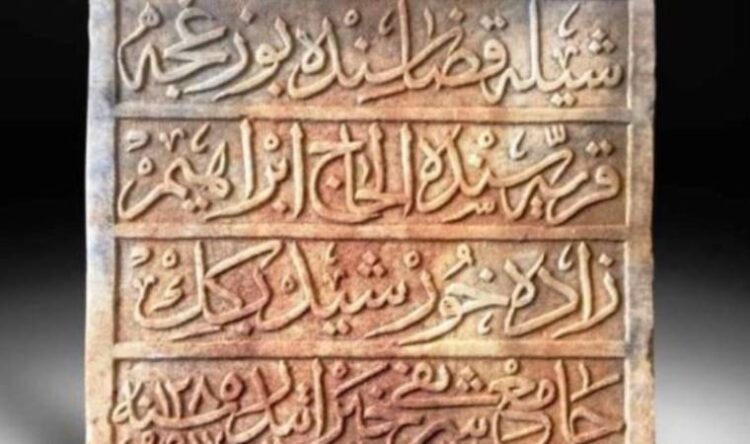 شیله قضاسنده بوزغجه
قریه سنده الحاج ابراهیم
زاده خورشید بكك
جامع شریفی خیراتیدر سنه ١٢٨٥